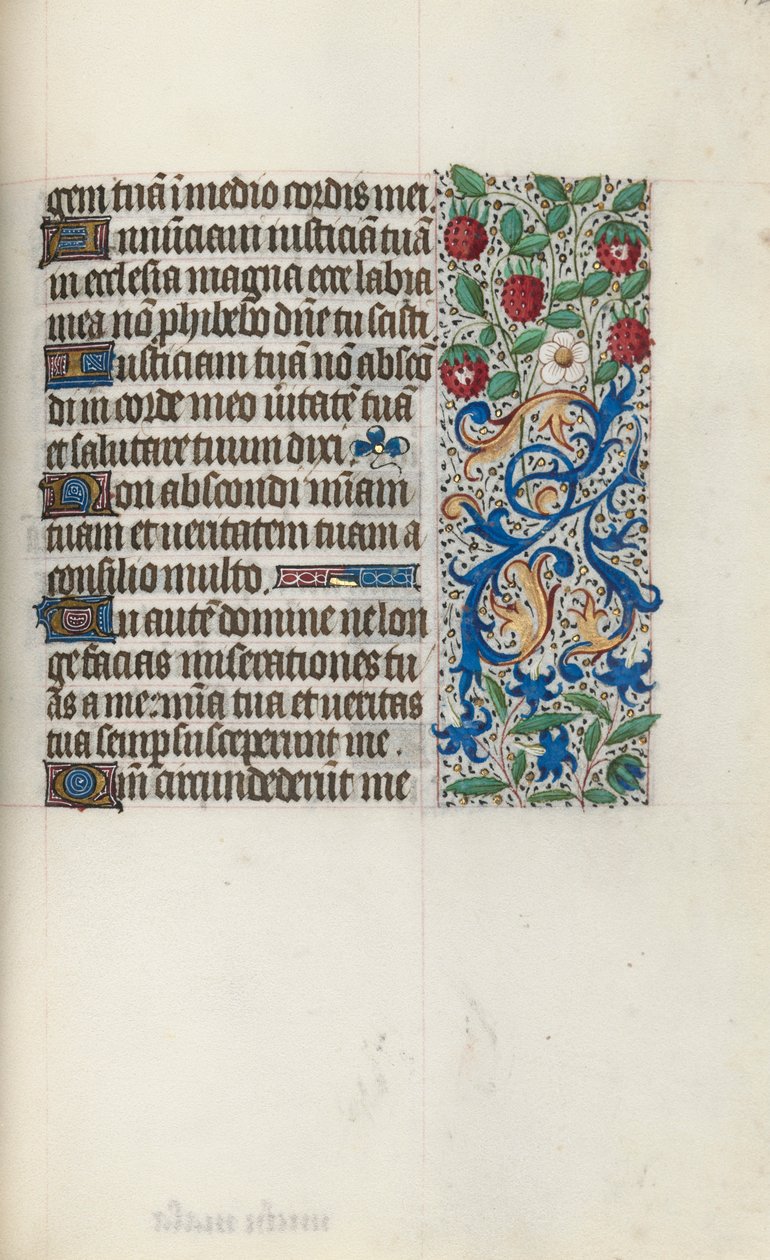 gem tuā ī medio cordis mei
Annūciaui iusticiā tuā
in ecclesia magna ecce labia
mea nō ꝓhibebo dn̄e tu scisti
Iusticiam tuā nō abscō
di in corde meo ūitatē tuā
et salutare tuum dixi.
Non abscondi mīam
tuam et ueritatem tuam a
consilio multo.
Tu autē domine ne lon
ge facias miserationes tu
as a me: mīa tua et ueritas
tua semꝑ susceperunt me.
Qm̄ circundederūt me